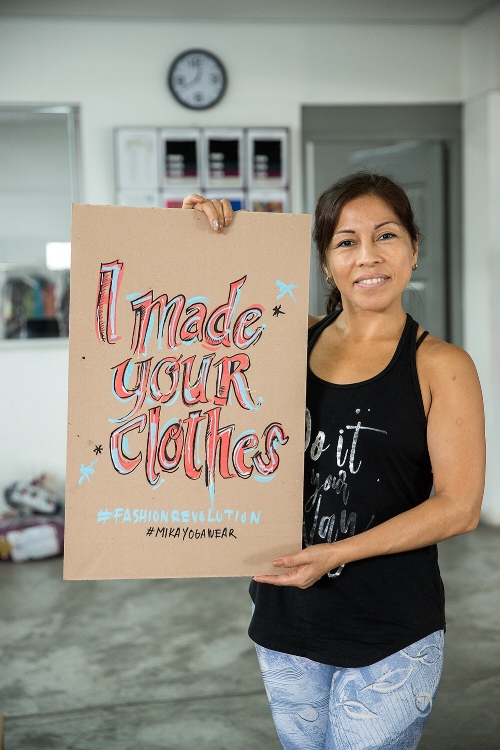 I made
your
clothes
#FASHIONREVOLUTION
#MIKAYOGAWEAR
Do it
your
Way